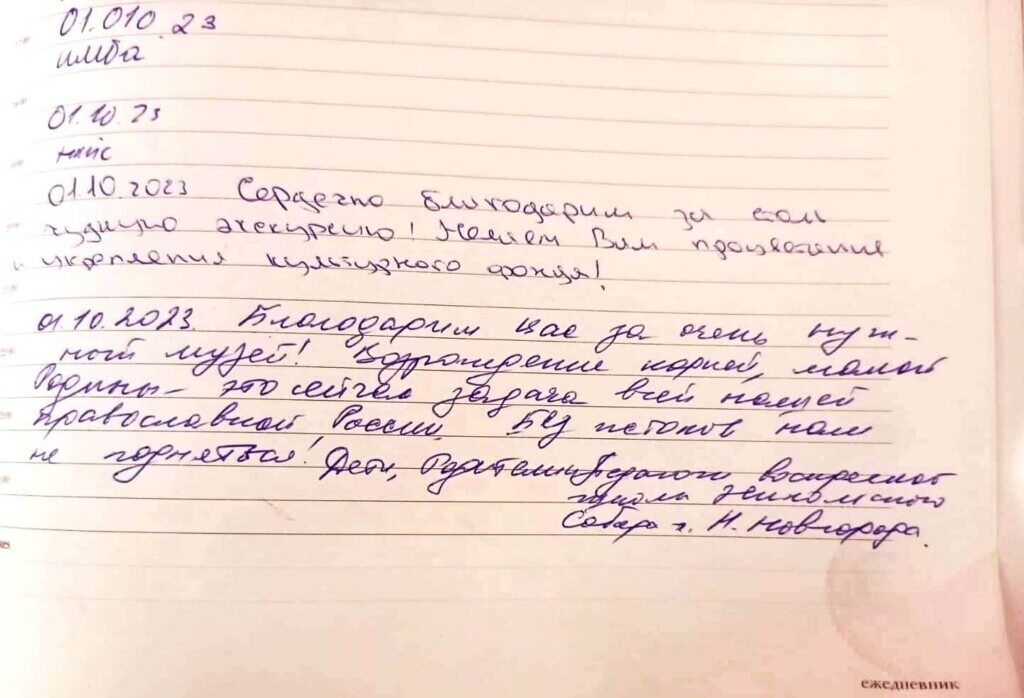 01.010.23
имба
01.10.23
найс
01.10.2023 Сердечно благодарим за столь
чудную экскурсию! Желаем Вам процветания
и укрепления культурного фонда!
01.10.2023. Благодарим вас за очень нуж-
ный музей! Возрождение корней, малой
Родины – это сейчас задача всей нашей
православной России. Без истоков нам
не подняться! Дети, Родители, Педагоги воскресной
школы
Собора г. Н. Новгорода.
ежедневник